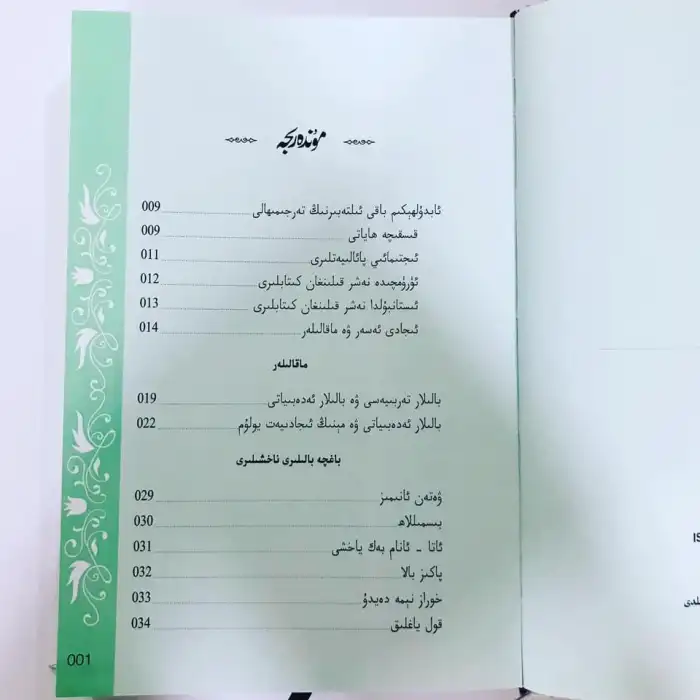 مۇندەرىجە
ئابدۇلھېكىم باقى ئىلتەبىرنىڭ تەرجىمىھالى 009
قىسقىچە ھاياتى 009
ئىجتىمائىي پائالىيەتلىرى 011
ئۈرۈمچىدە نەشر قىلىنغان كىتابلىرى 012
ئىستانبۇلدا نەشر قىلىنغان كىتابلىرى 013
ئىجادى ئەسەر ۋە ماقالىلەر 014
ماقالىلەر
بالىلار تەربىيەسى ۋە بالىلار ئەدەبىياتى 019
بالىلار ئەدەبىياتى ۋە مېنىڭ ئىجادىيەت يولۇم 022
باغچە بالىلىرى ناخشىلىرى
ۋەتەن ئانىمىز 029
بىسمىللاھ 030
ئاتا - ئانام بەك ياخشى 031
پاكىز بالا 032
خوراز نېمە دەيدۇ 033
قول ياغلىق 034
001
IS